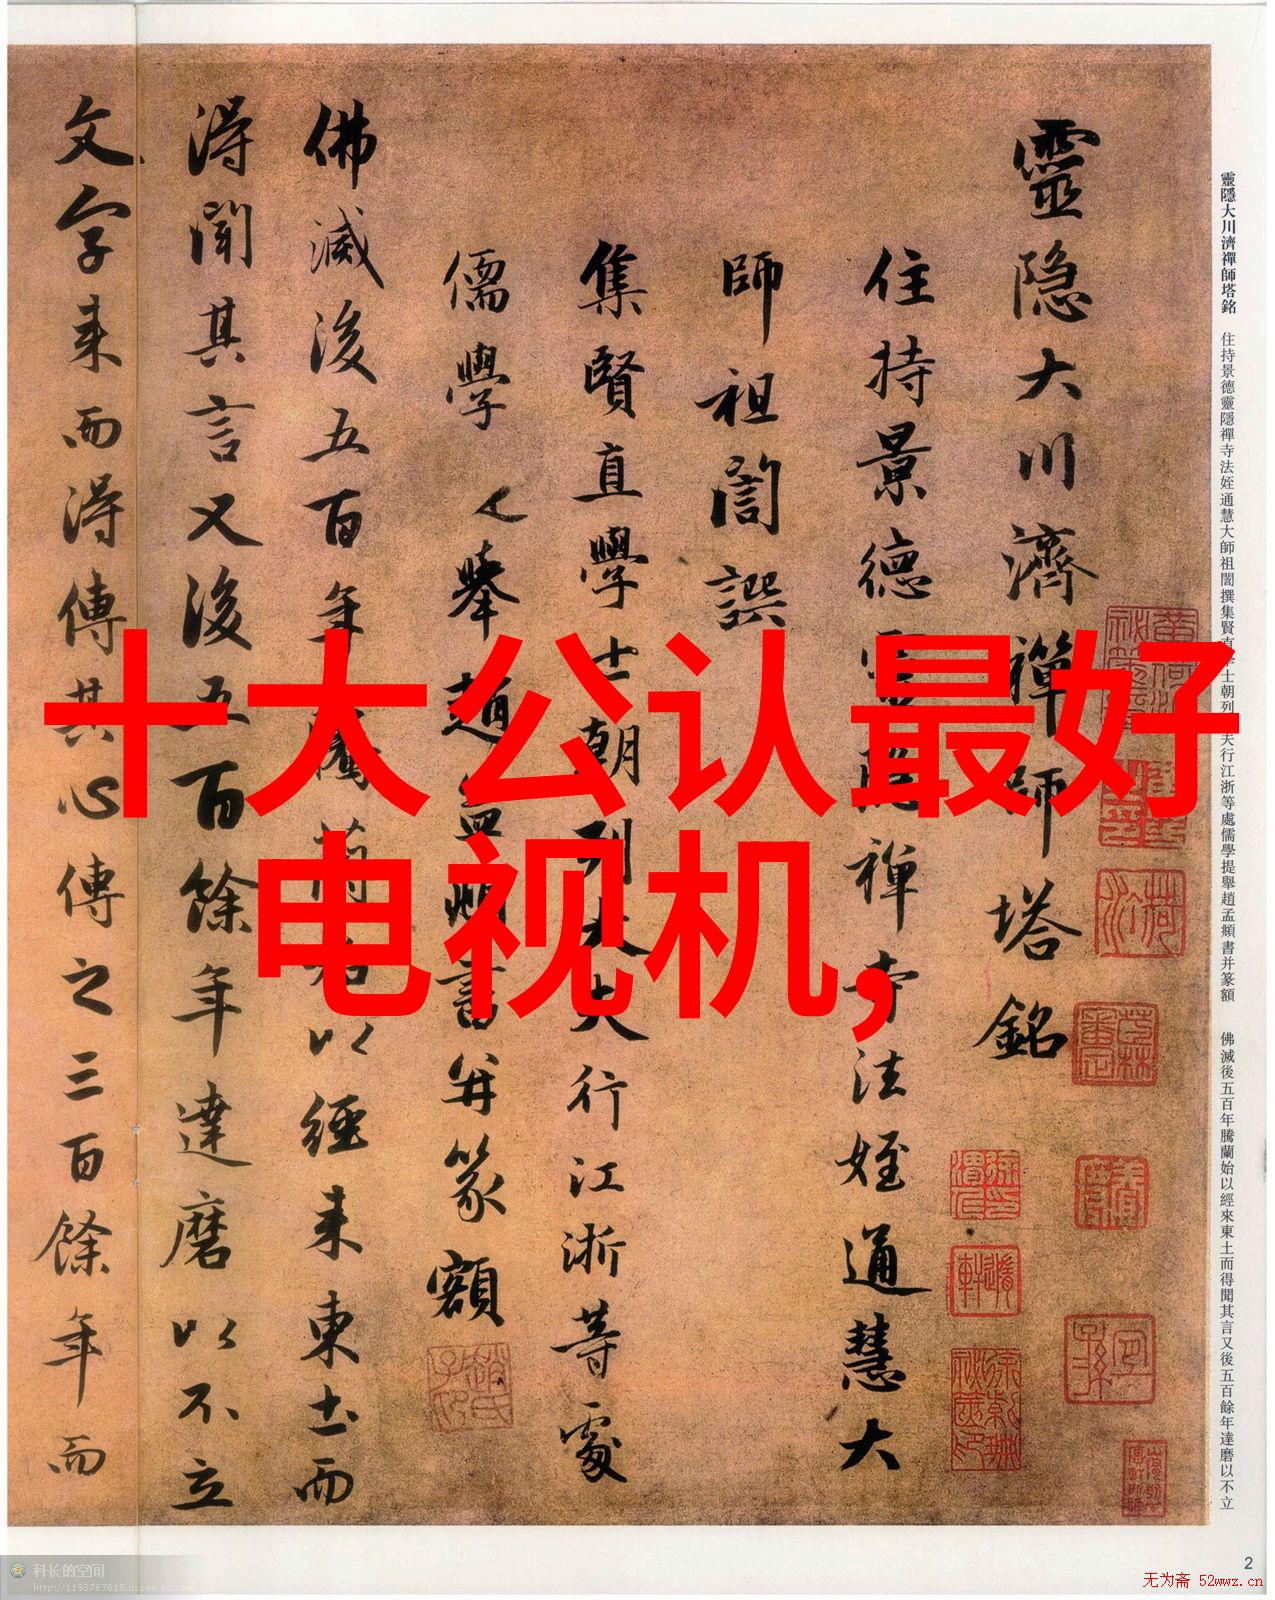 靈隐大川濟禪師塔銘
住持景德靈隠禅寺法姪通慧大
師祖誾譔
集賢直學士朝列大夫行江浙等處
儒學提舉趙孟頫書并篆額
佛滅後五百年騰蘭始以經来東土而
得聞其言又後五百餘年達磨以不立
文字来而得傳其心傳之三百餘年而
靈隱大川濟禪師塔銘 住持景德靈隱禪寺法姪通慧大師祖誾撰集賢直學士朝列大夫行江浙等處儒學提舉趙孟頫書并篆額 佛滅後五百年騰蘭始以經來東土而得聞其言又後五百餘年達磨以不立
十大公认最好
电视机,
科长的空间
http://1193767618.qzone.qq.com
2
无为斋 52wwz.cn